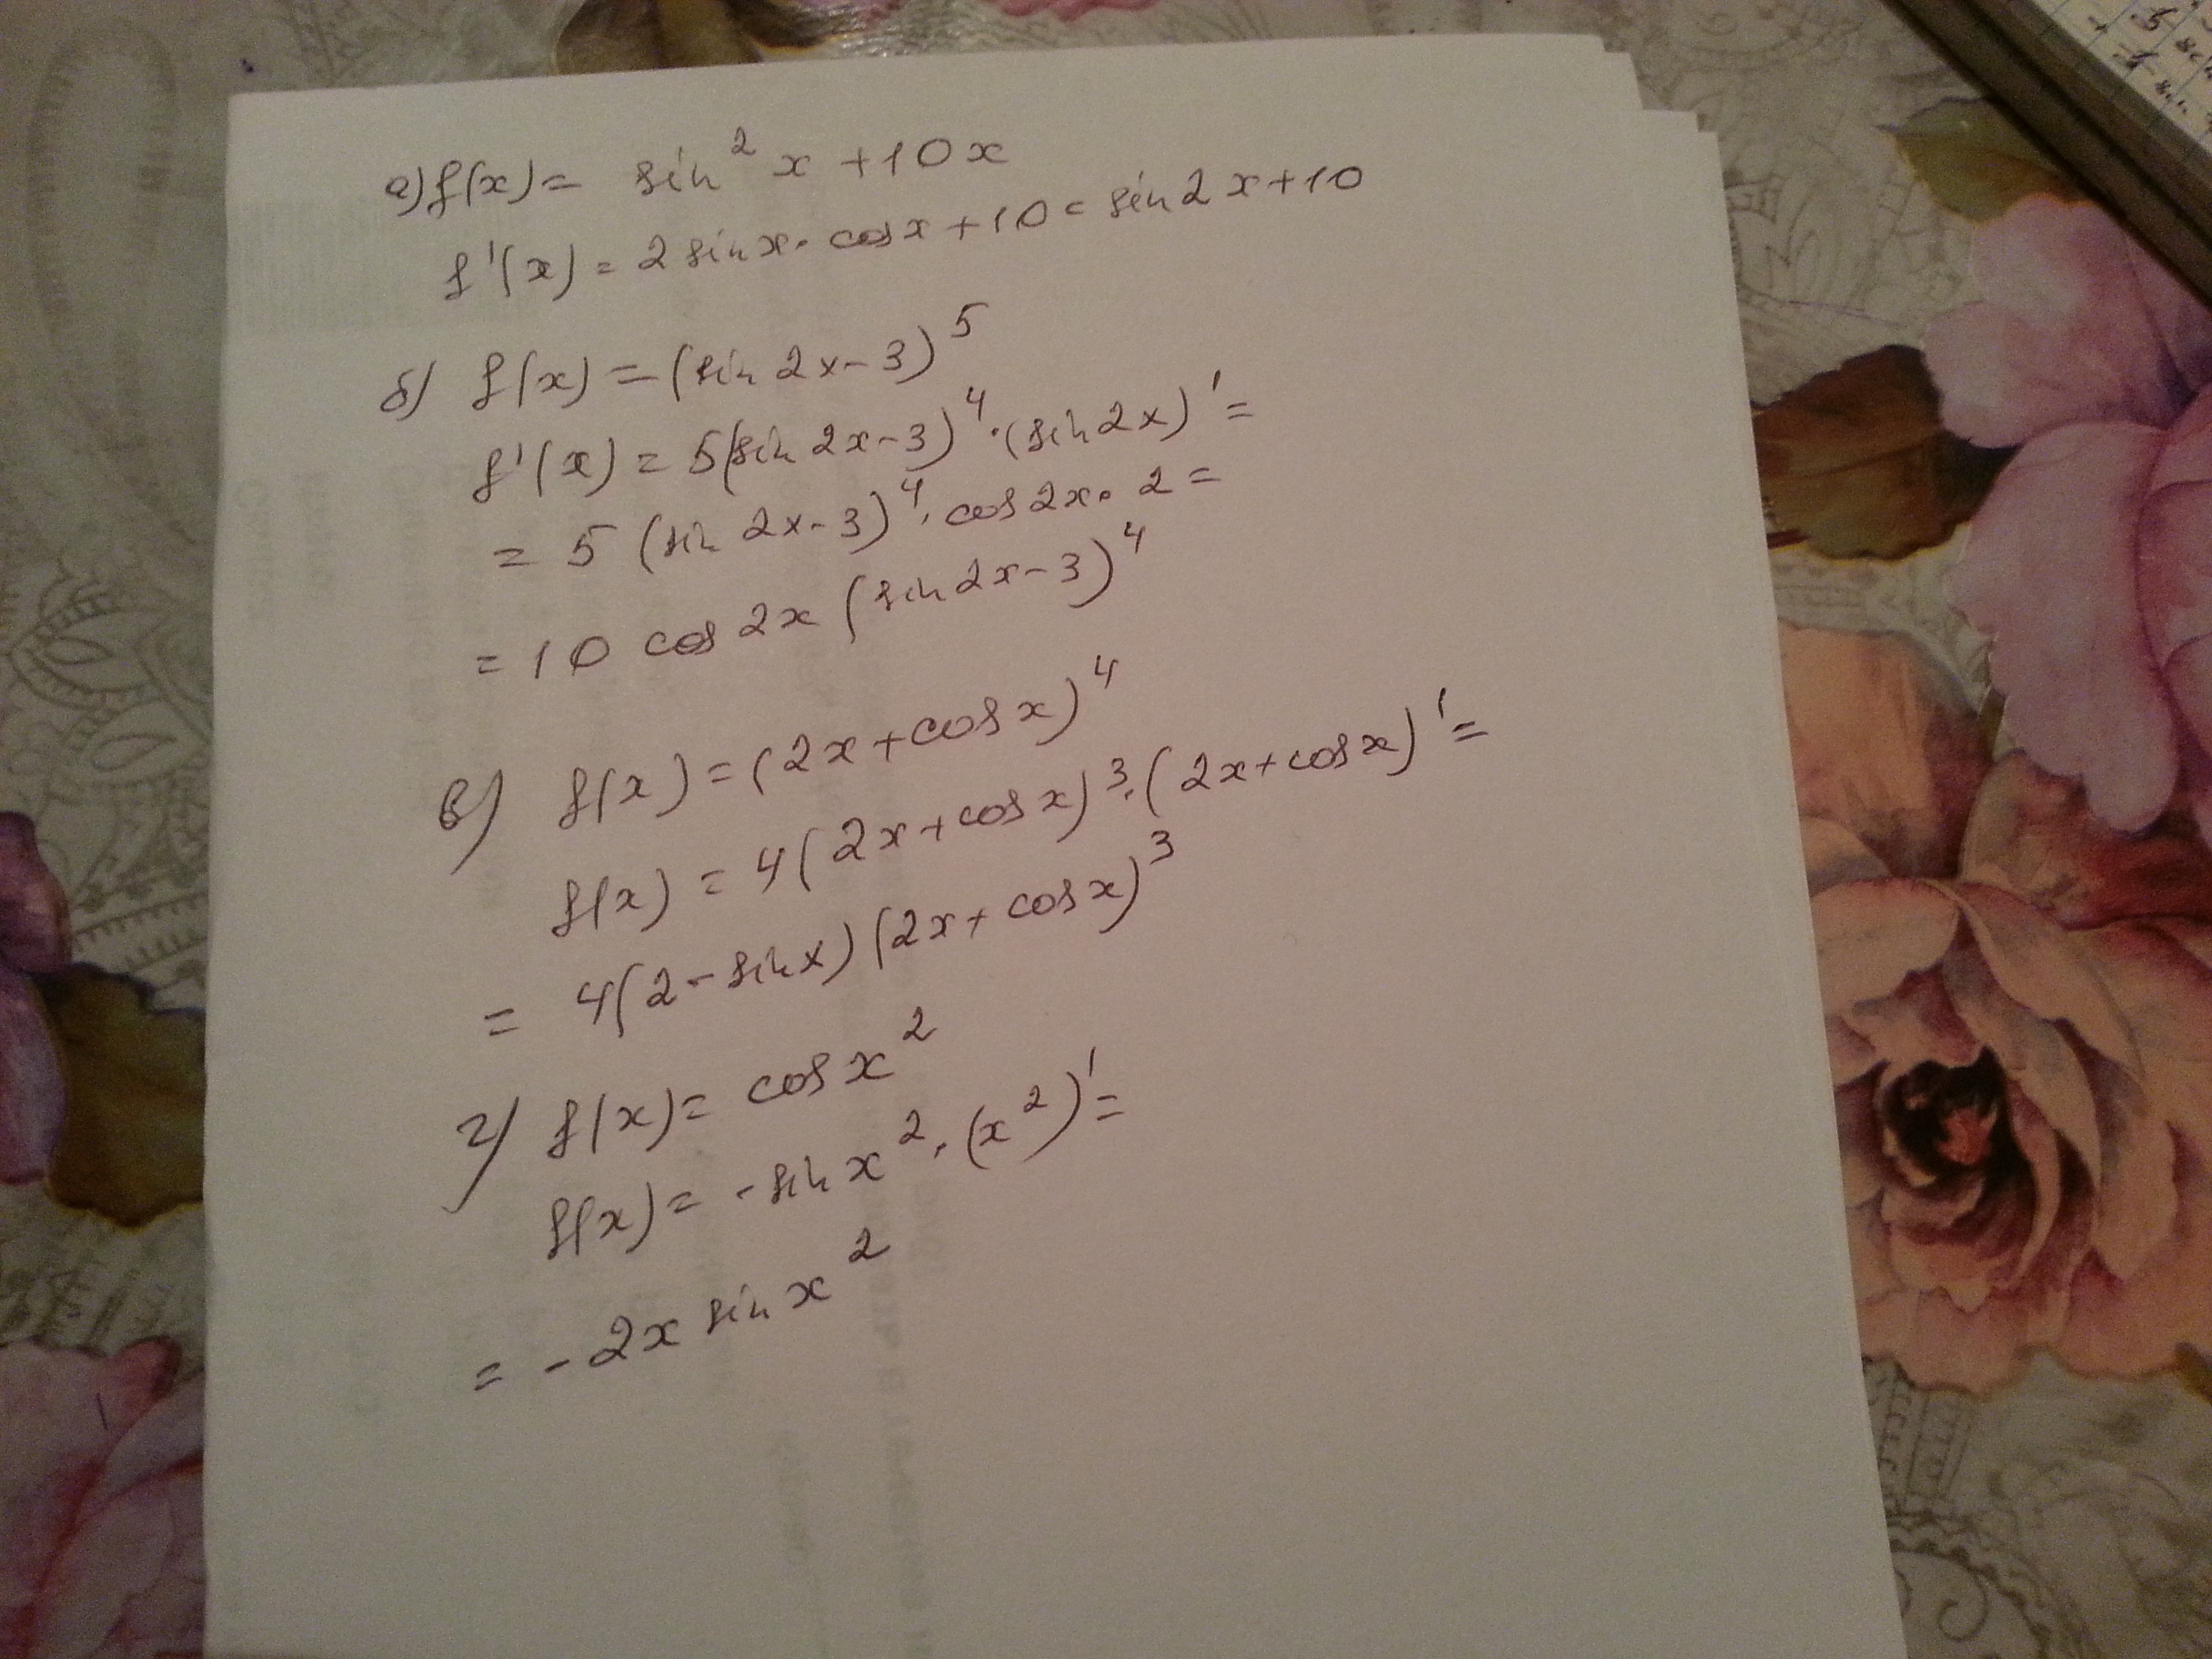 а) f(x) = sin² x + 10x
f'(x) = 2 sin x · cos x + 10 = sin 2x + 10
б) f(x) = (sin 2x - 3)⁵
f'(x) = 5(sin 2x - 3)⁴ · (sin 2x)' =
= 5 (sin 2x - 3)⁴ · cos 2x · 2 =
= 10 cos 2x (sin 2x - 3)⁴
в) f(x) = (2x + cos x)⁴
f(x) = 4(2x + cos x)³ · (2x + cos x)' =
= 4(2 - sin x) (2x + cos x)³
г) f(x) = cos x²
f(x) = - sin x² · (x²)' =
= - 2x sin x²